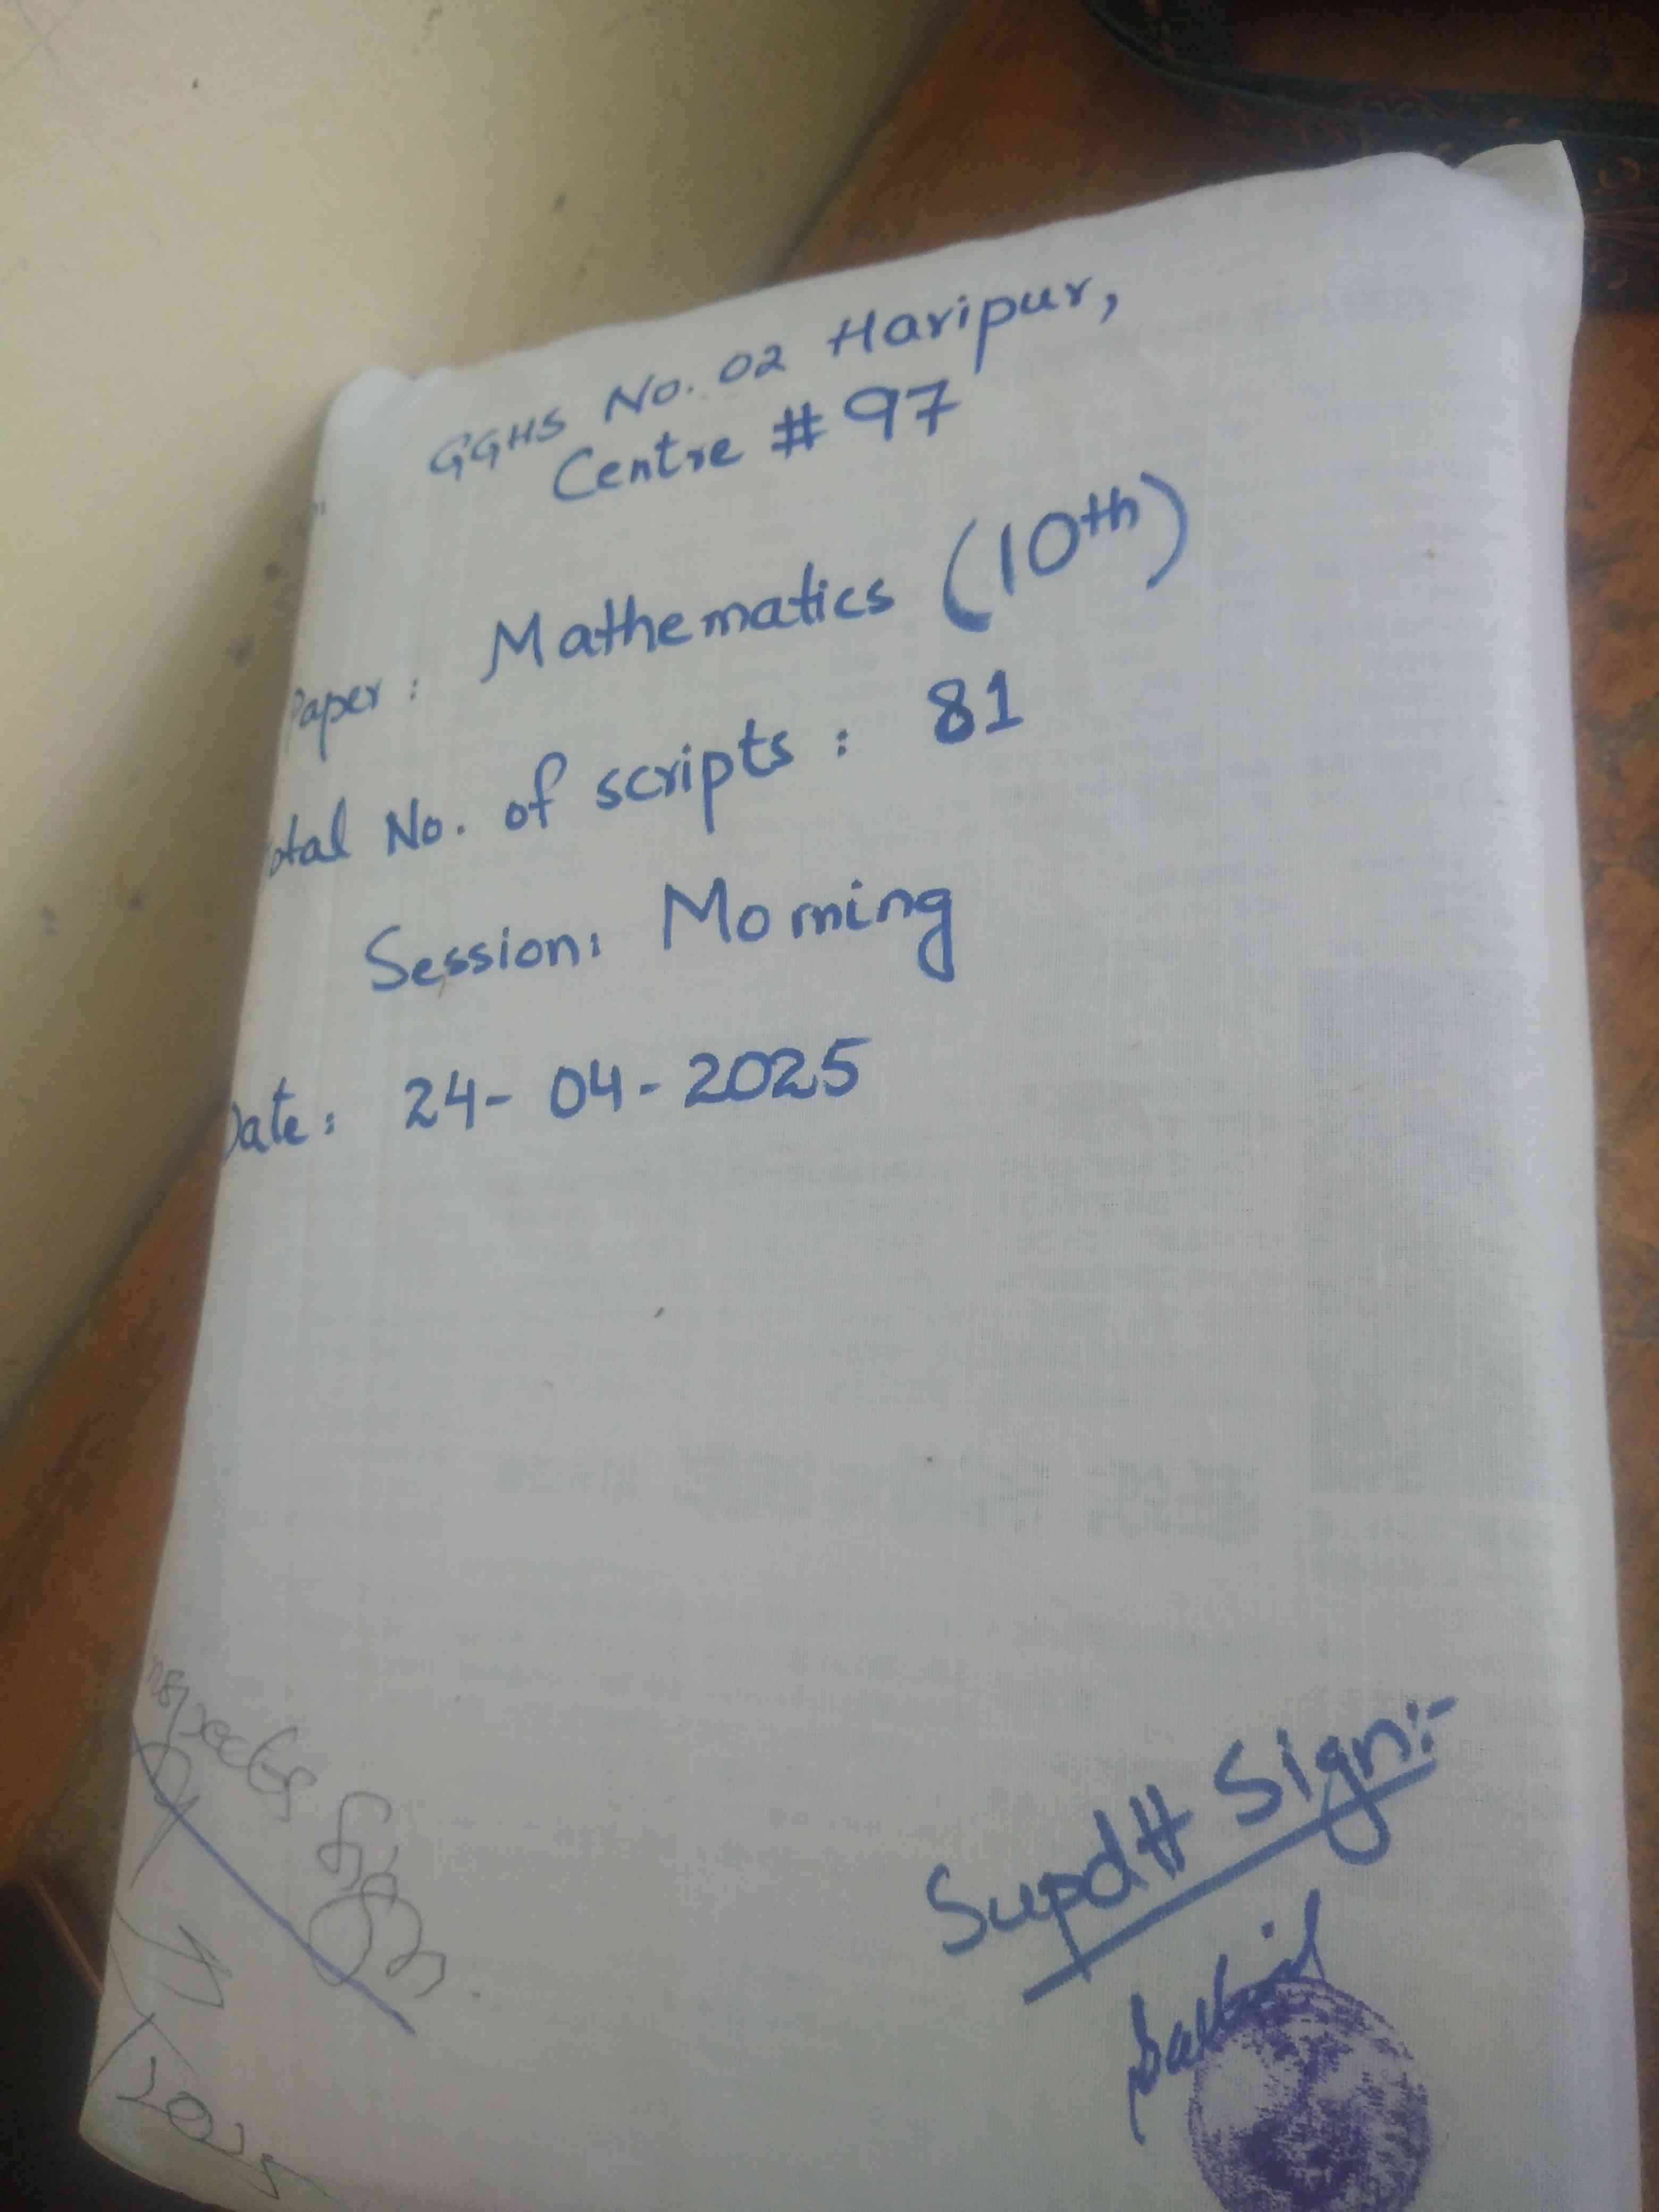 GGHS No. 02 Haripur,
Centre # 97
Paper : Mathematics (10th)
otal No. of scripts : 81
Session: Morning
Date: 24-04-2025
Supdtt Sign:-
2025